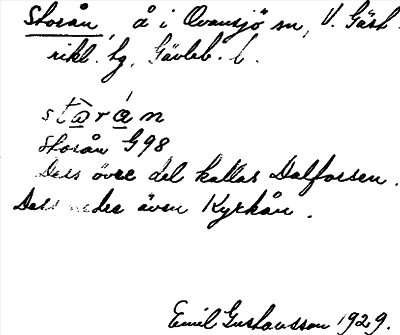 Storån, å i Ovansjö sn, V. Gäst-
rikl. hg, Gävleb. l.
stàrán
Storån G98
Dess övre del kallas Dalforsen.
Dess nedre även Kyrkån.
Emil Gustavsson 1929.